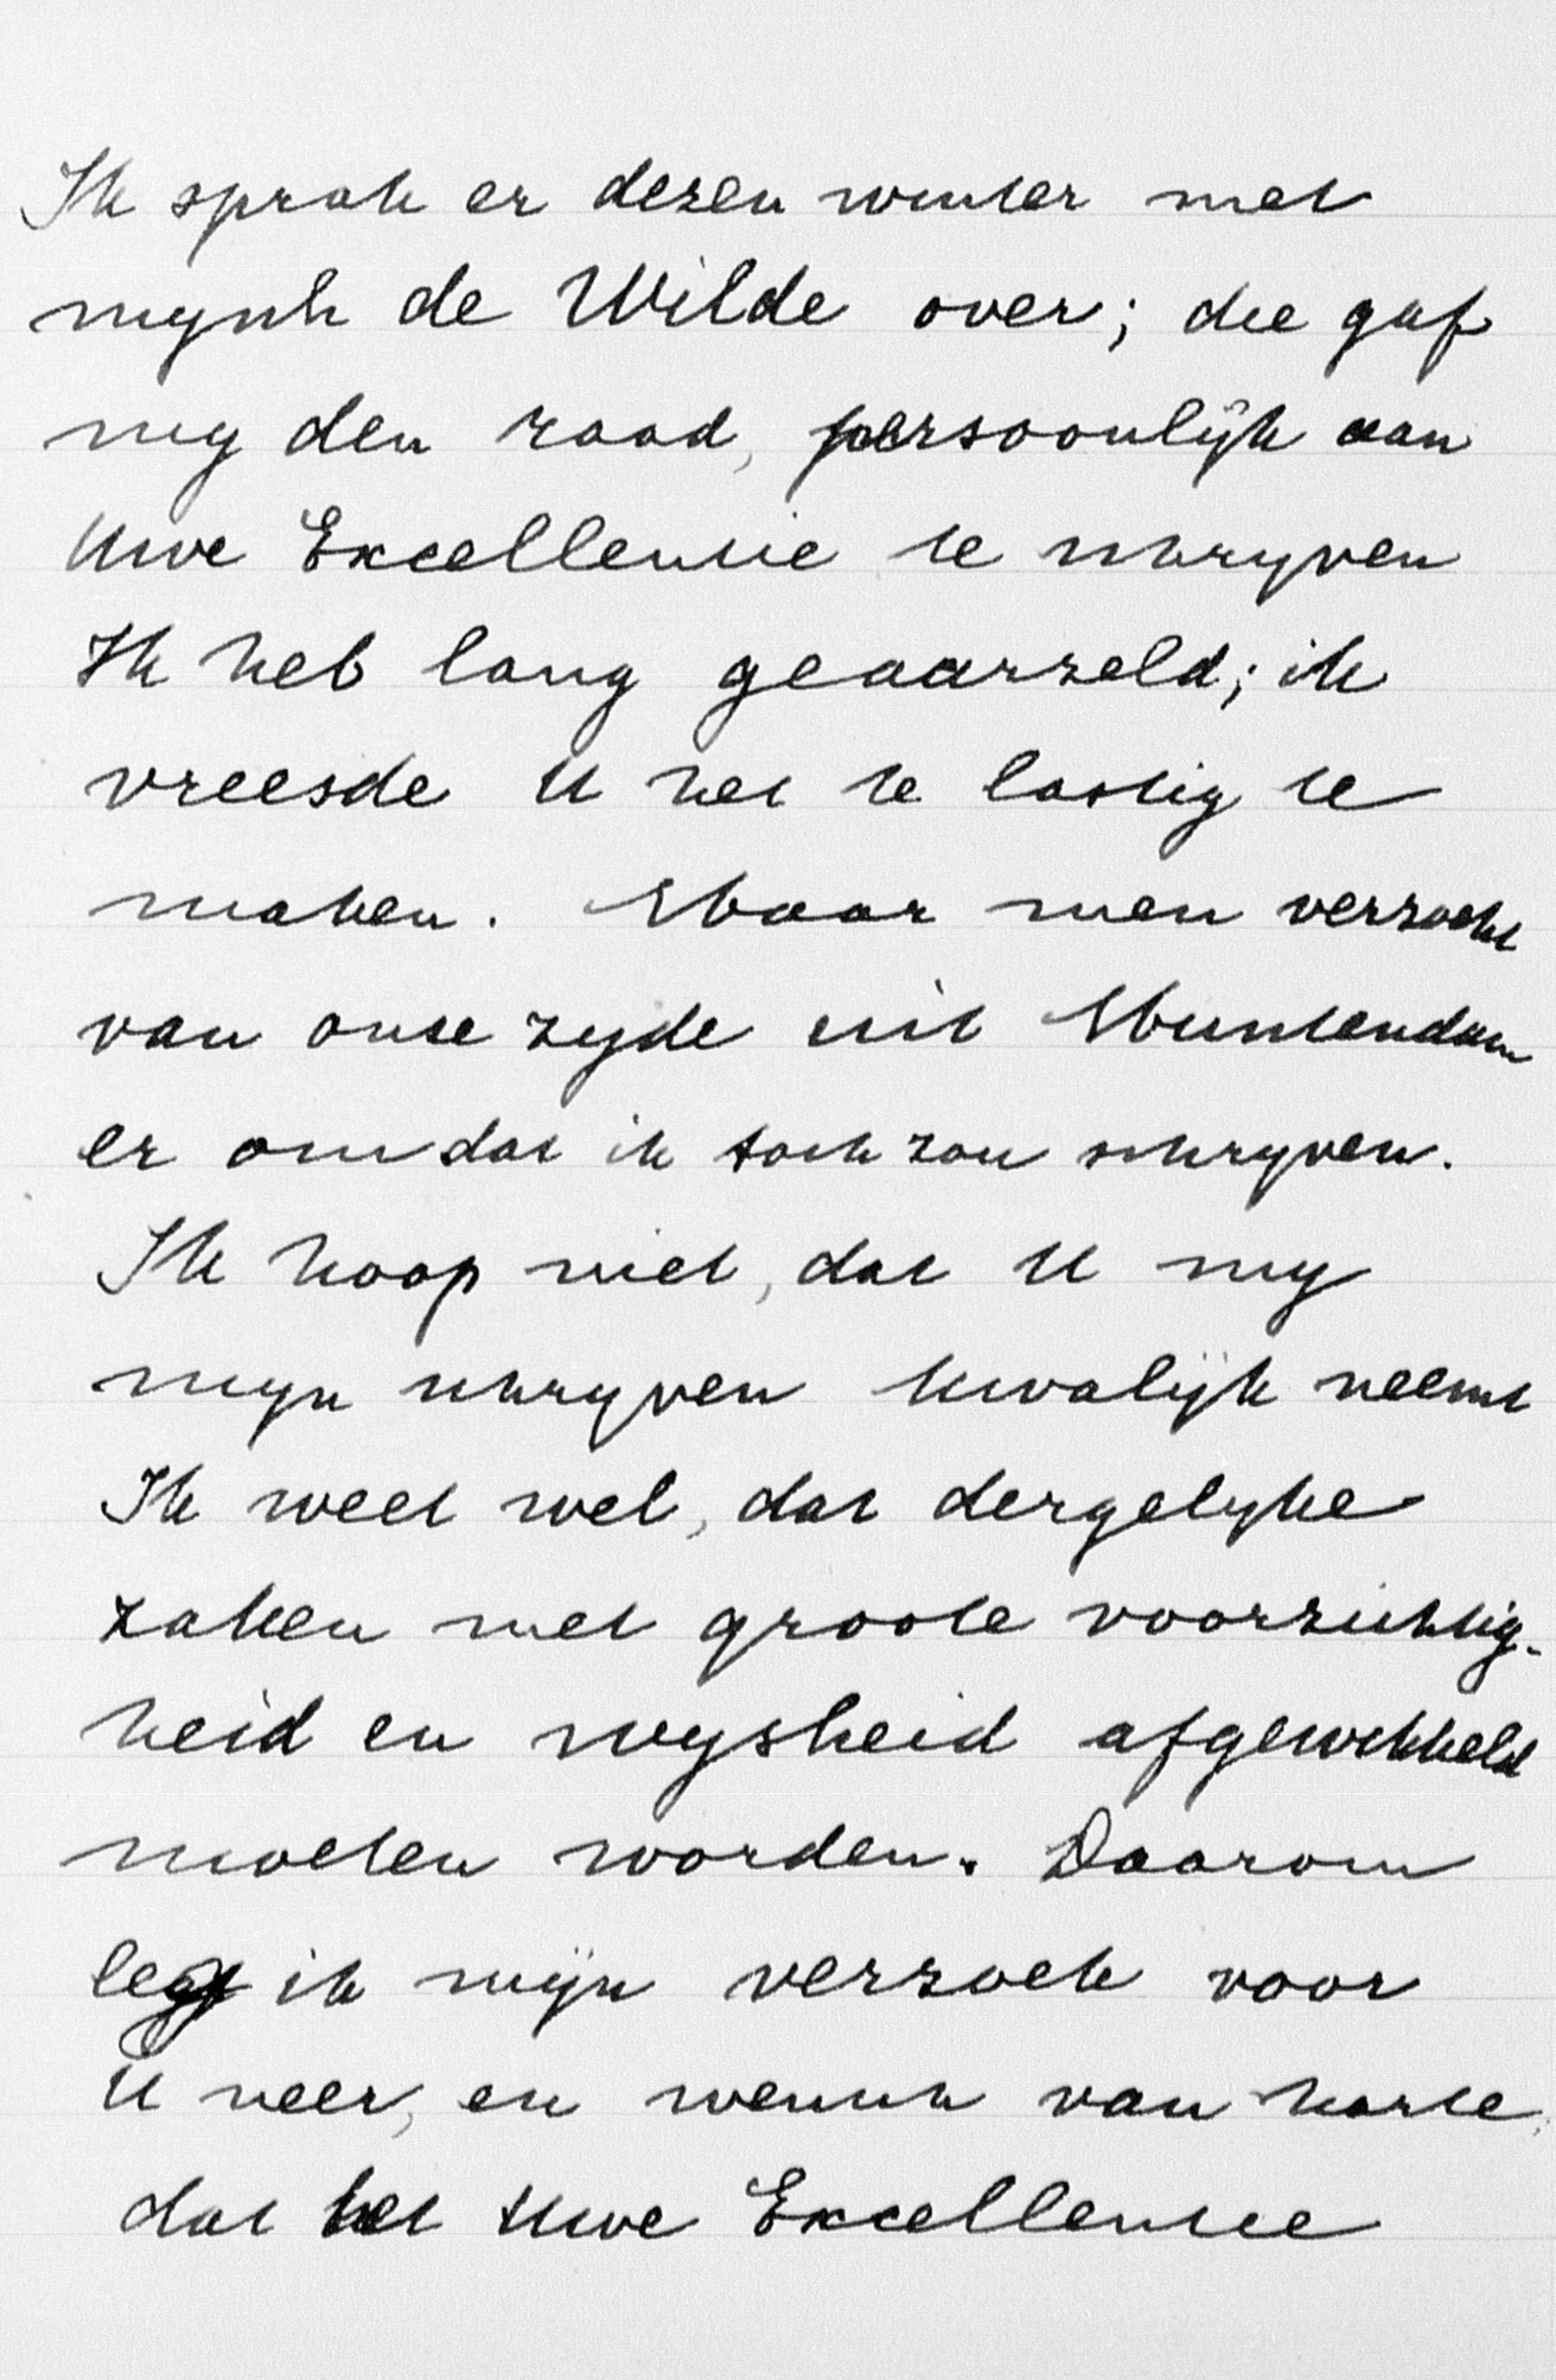 Ik sprak er dezen winter met
mynh de Wilde over; die gaf
my den raad, persoonlijk aan
Uwe Excellentie te schryven
Ik heb lang geaarzeld; ik
vreesde U het te lastig te
maken. Maar men verzocht
van onze zyde uit Muntendam
er om dat ik toch zou schryven.
Ik hoop niet, dat U my
myn schryven kwalijk neemt
Ik weet wel, dat dergelyke
zaken met groote voorzichtig-
heid en wysheid afgewikkeld
moeten worden. Daarom
leg ik mijn verzoek voor
U neer, en wensch van harte,
dat het Uwe Excellentie